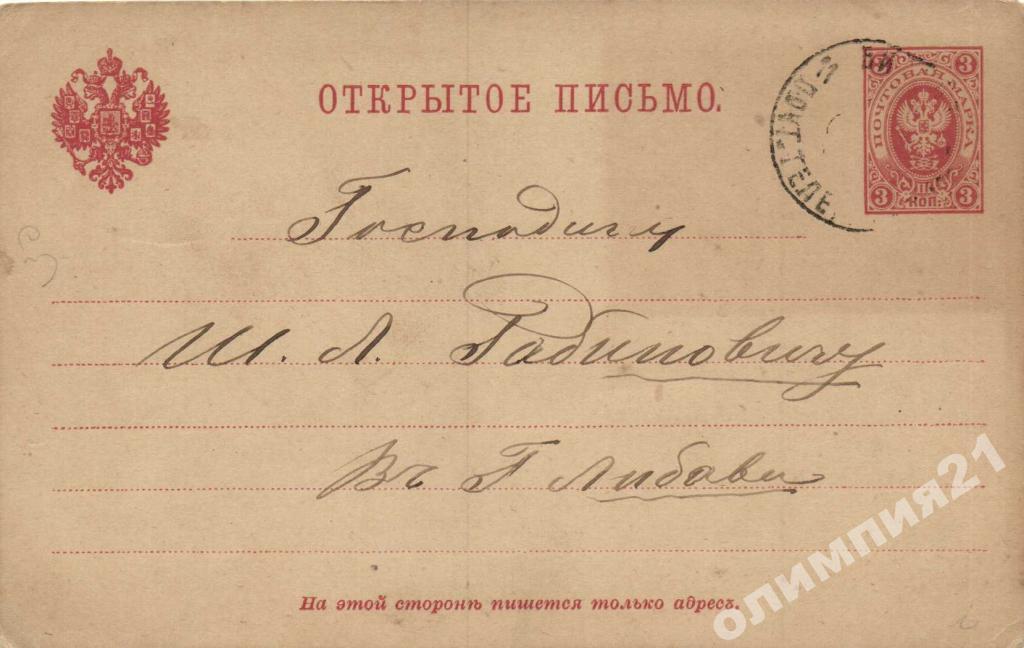 ОТКРЫТОЕ ПИСЬМО.
3 3
ПОЧТОВАЯ МАРКА
3 КОП. 3
Господину
Ш. Л. Рабиновичу
Въ Г Либаве
На этой сторонѣ пишется только адресъ.
олимпия21